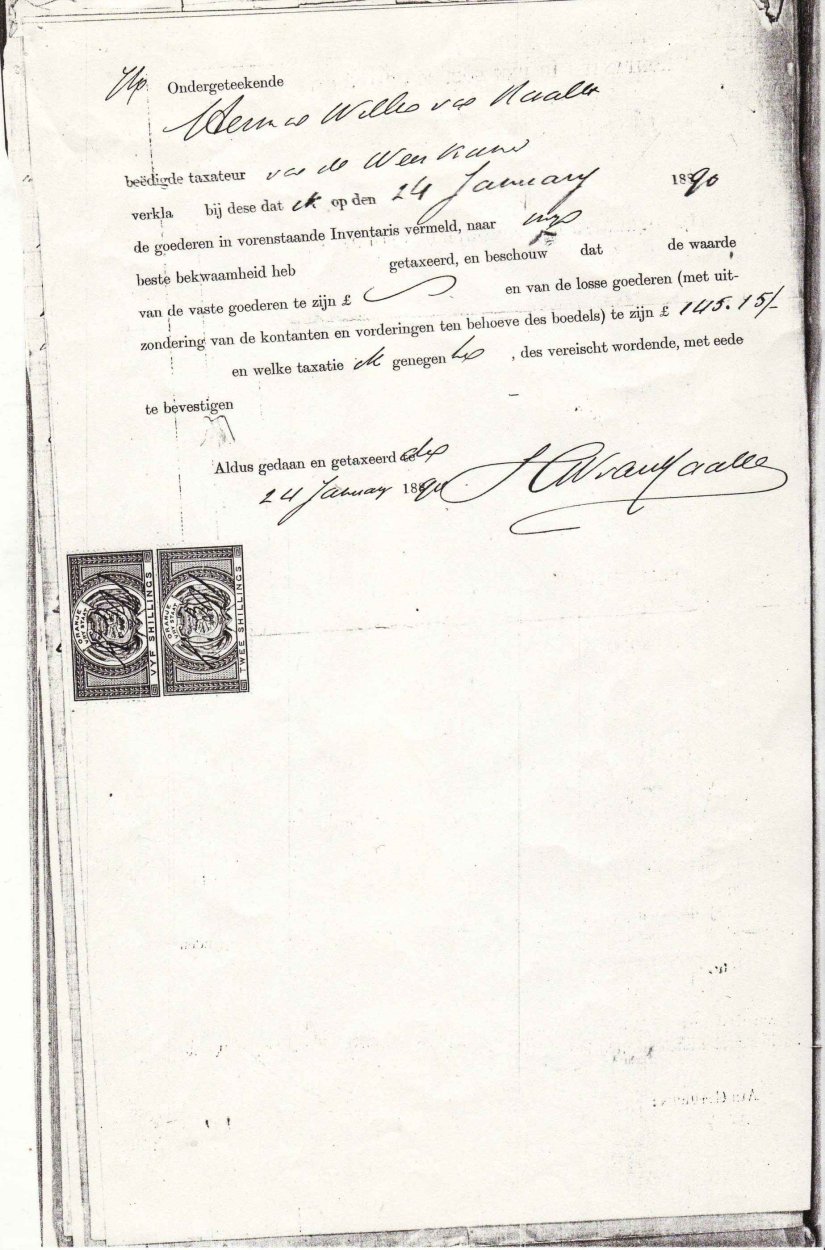 Ondergeteekende
van
beëdigde taxateur van de Weeskamer
verkla bij dese dat ik op den 24 January 1890
de goederen in vorenstaande Inventaris vermeld, naar mijn
beste bekwaamheid heb getaxeerd, en beschouw dat de waarde
van de vaste goederen te zijn £ en van de losse goederen (met uit-
zondering van de kontanten en vorderingen ten behoeve des boedels) te zijn £ 145.15/-
en welke taxatie ik genegen ben, des vereischt wordende, met eede
te bevestigen
Aldus gedaan en getaxeerd den
24 January 1890
ORANJE VRY STAAT
VYF SHILLINGS
ORANJE VRY STAAT
TWEE SHILLINGS